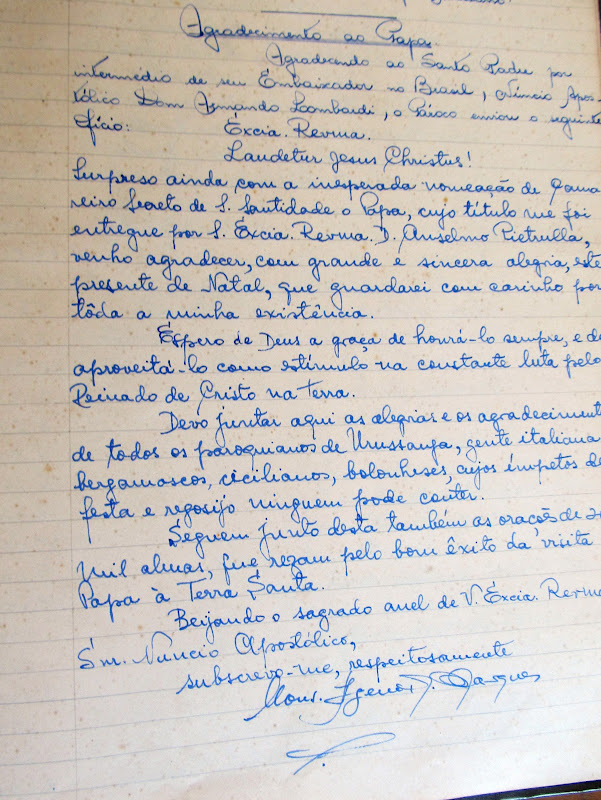 Agradecimento ao Papa.
Agradecendo ao Santo Padre por
intermédio de seu Embaixador no Brasil, Núncio Apos-
tólico Dom Armando Lombardi, o Pároco enviou o seguinte
Ofício: Éxcia. Revma.
Laudetur Jesus Christus!
Surpreso ainda com a inesperada nomeação de Cama
reiro Secreto de S. Santidade o Papa, cujo título me foi
entregue por S. Excia. Revma. D. Anselmo Pietrulla,
venho agradecer, com grande e sincera alegria, este
presente de Natal, que guardarei com carinho por
tôda a minha existência.
Espero de Deus a graça de honrá-lo sempre, e de
aproveitá-lo como estímulo na constante luta pelo
Reinado de Cristo na Terra.
Devo juntar aqui as alegrias e os agradeciment
de todos os paroquianos de Urussanga, gente italiana
bergamascos, cicilianos, bolonheses, cujos ímpetos de
festa e regosijo ninguem pode conter.
Seguem junto desta também as orações de
mil almas, que rezam pelo bom êxito da visita
Papa à Terra Santa.
Beijando o sagrado anel de V. Éxcia. Revma
Snr. Nuncio Apostólico,
subscrevo-me, respeitosamente
Mons. Agenor Marques